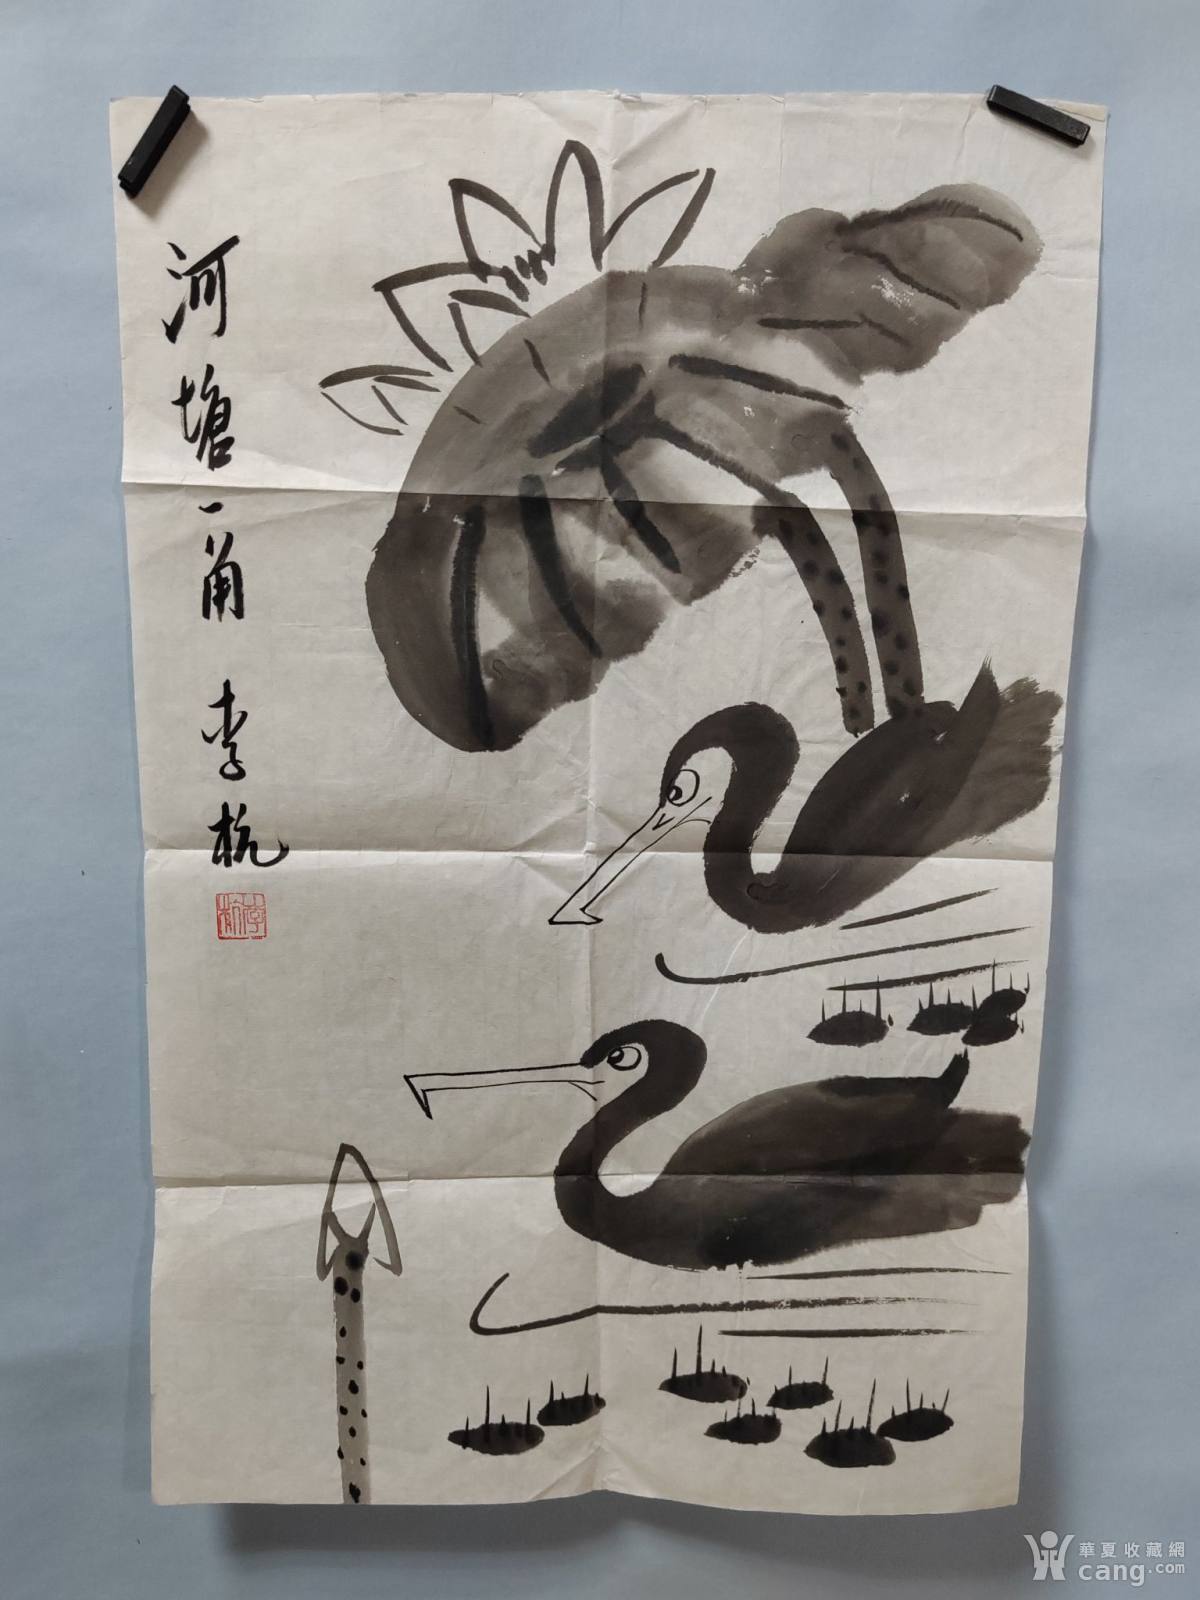 河塘一角 李杭
李杭
華夏收藏網
cang.com